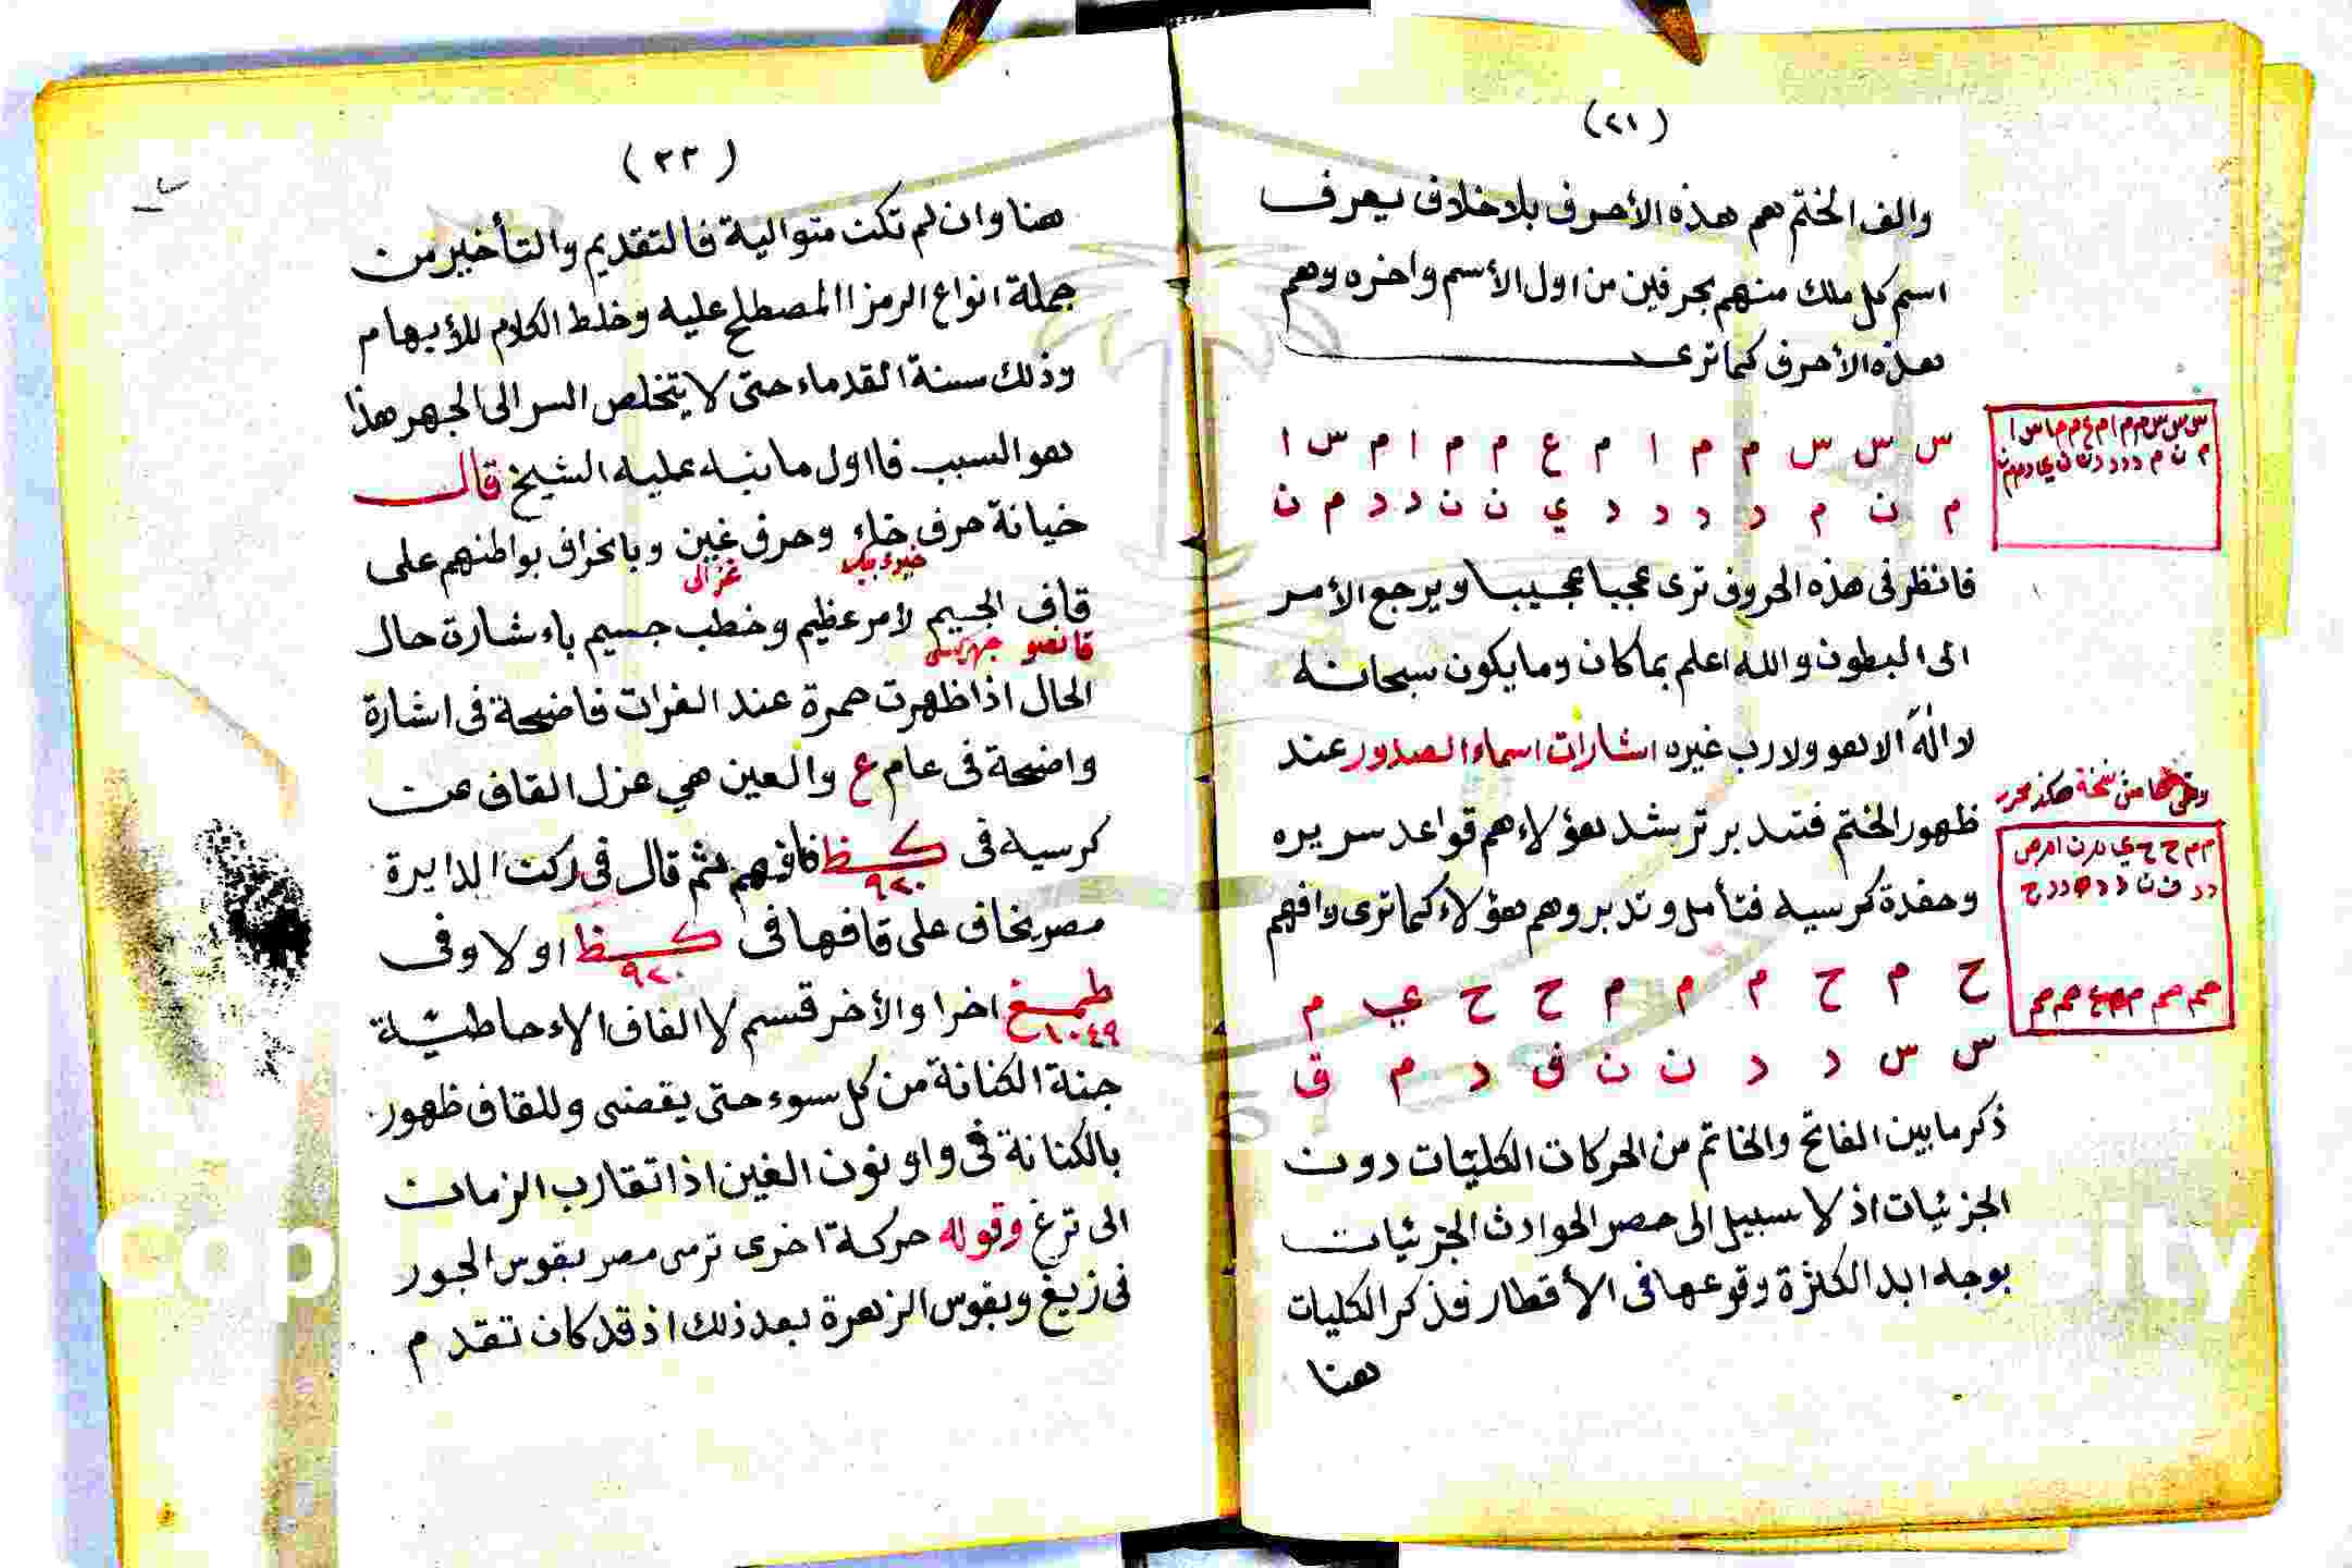 (٢١)
والف الختم هم هذه الأحرف بلا خلاف يعرف
اسم كل ملك منهم بحرفين من اول الأسم واخره وهم
هذه الأحرف كما ترى
س س س م م ا م ع م م ا م س ا
م ن م د د د د ي ن ن د د م ن
فانظر فى هذه الحروف ترى عجبا عجيبا ويرجع الأمر
الى البطون والله اعلم بما كان وما يكون سبحانه
لا اله الا هو ولا رب غيره اشارات اسماء الصدور عند
وفى هامش نسخة هكذا محرر
ظهور الختم فتدبر ترشد هؤلاء هم قواعد سريره
وحفدة كرسيه فتأمل وتدبر وهم هؤلاء كما ترى وافهم
ح م ح م م م ح ح ي م
س س د د ن ن ف د م ق
ذكر ما بين الفاتح والخاتم من الحركات الكليّات دون
الجزئيات اذ لا سبيل الى حصر الحوادث الجزئيات
بوجه ابد الكثرة وقوعها فى الأقطار فذكر الكليات
هنا
(٢٣)
هنا وان لم تكن متوالية فالتقديم والتأخير من
جملة انواع الرمز المصطلح عليه وخلط الكلام للأبهام
وذلك سنة القدماء حتى لا يتخلص السر الى الجهر هذا
هو السبب فااول ما نبه عليه الشيخ قال
خيانة حرف خاء وحرف غين وبانحراف بواطنهم على
غزالى
قاف الجيم لامر عظيم وخطب جسيم باءشارة حال
الحال اذا ظهرت حمرة عند الفرات فاضحة فى اشارة
واضحة فى عام ع والعين هي عزل القاف عن
كرسيه فى كظ فافهم ثم قال فى ركت الدايرة
٩٢٠
مصر يخاف على قافها فى كظ اولا وفى
٩٢٠
طمغ اخرا والأخر قسم لا الفاف الاءحاطيّة
١٠٤٩
جنة الكنانة من كل سوء حتى يقضى وللقاف ظهور
بالكنانة فى واو نون الغين اذا تقارب الزمان
الى ترغ وقوله حركة اخرى ترمى مصر بقوس الجور
فى زيغ وبقوس الزهرة بعد ذلك اذ قد كان تقدم